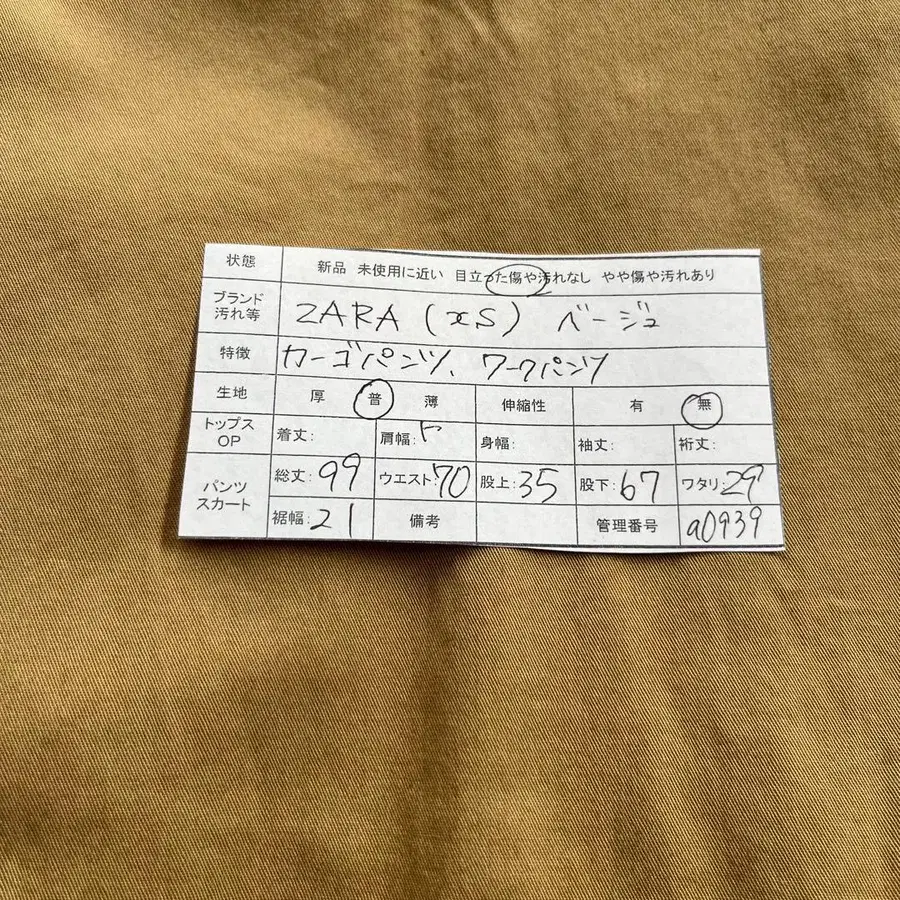 状態 新品 未使用に近い 目立った傷や汚れなし やや傷や汚れあり
ブランド 汚れ等 ZARA (xS) ベージュ
特徴 カーゴパンツ、ワークパンツ
生地 厚 普 薄 伸縮性 有 無
トップス OP 着丈: 肩幅: 身幅: 袖丈: 裄丈:
パンツ スカート 総丈:99 ウエスト:70 股上:35 股下:67 ワタリ:29
裾幅:21 備考 管理番号 a0939